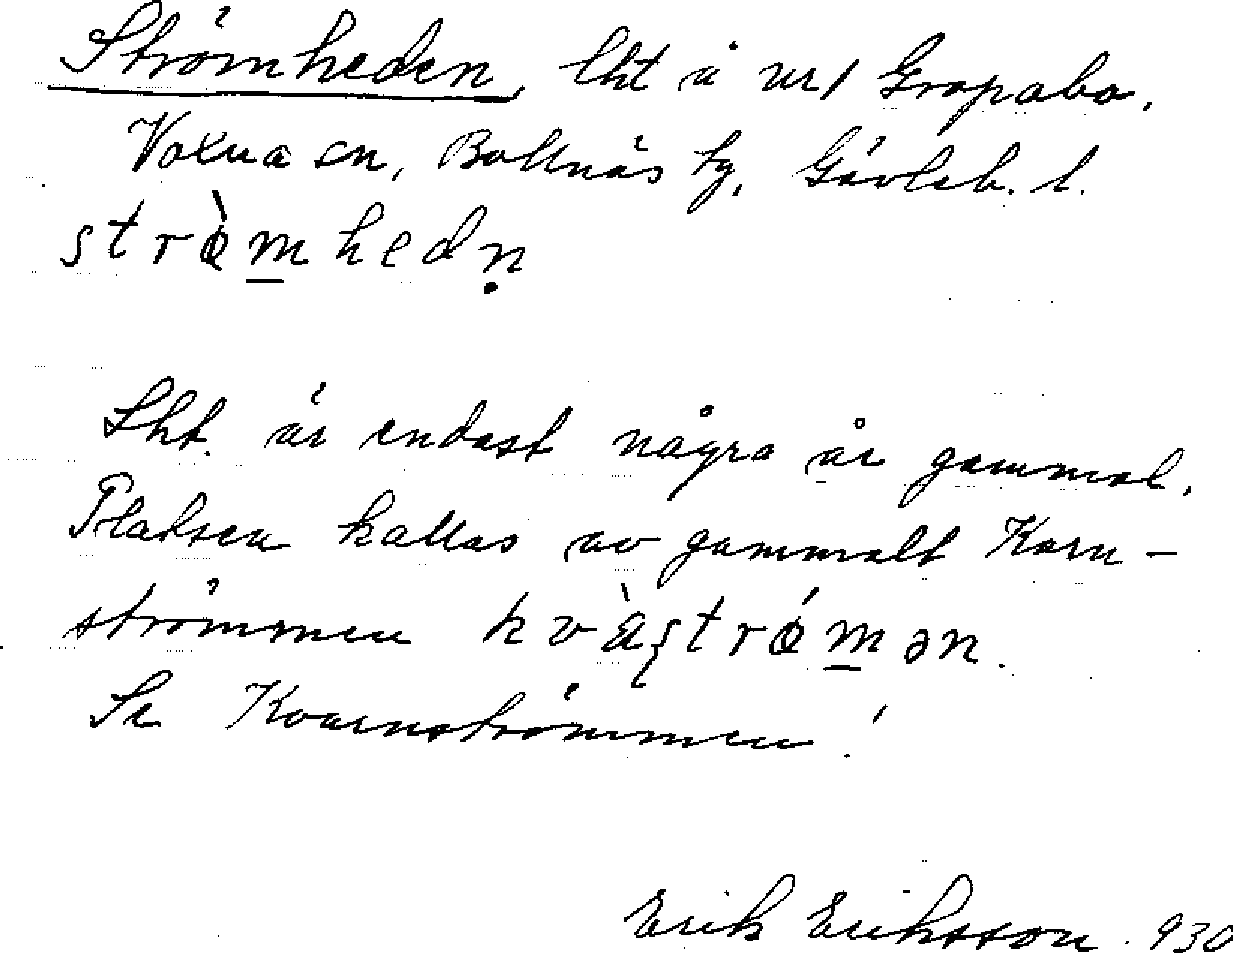 Strömheden, lht å nr 1 Gropabo,
Voxna sn, Bollnäs tg, Gävleb. l.
strø̀mhedṇ
Lht. är endast några år gammal.
Platsen kallas av gammalt Karn-
strömmen kvàʂtrǿmən.
Se Kvarnströmmen!
Erik Eriksson. 930